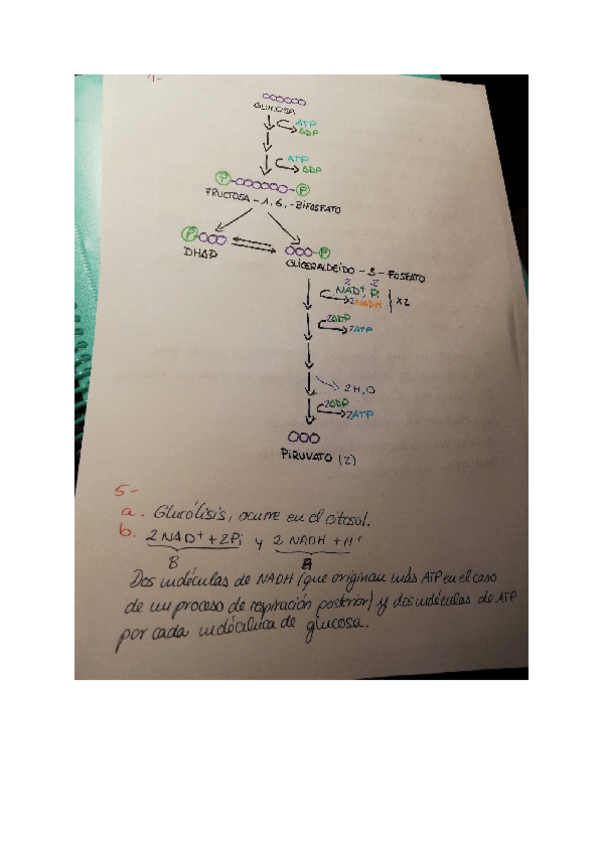 4-
GLUCOSA
ATP
ADP
ATP
ADP
P P
FRUCTOSA-1,6,-BIFOSFATO
P P
DHAP
GLICERALDEÍDO-3-FOSFATO
2 2
NAD+, Pi
2NADH
x2
2ADP
2ATP
2H2O
2ADP
2ATP
PIRUVATO (2)
5-
a. Glucólisis, ocurre en el citosol.
b. 2NAD+ + 2Pi y 2 NADH + H+
B A
Dos moléculas de NADH (que originan más ATP en el caso
de un proceso de respiración posterior) y dos moléculas de ATP
por cada molécula de glucosa.